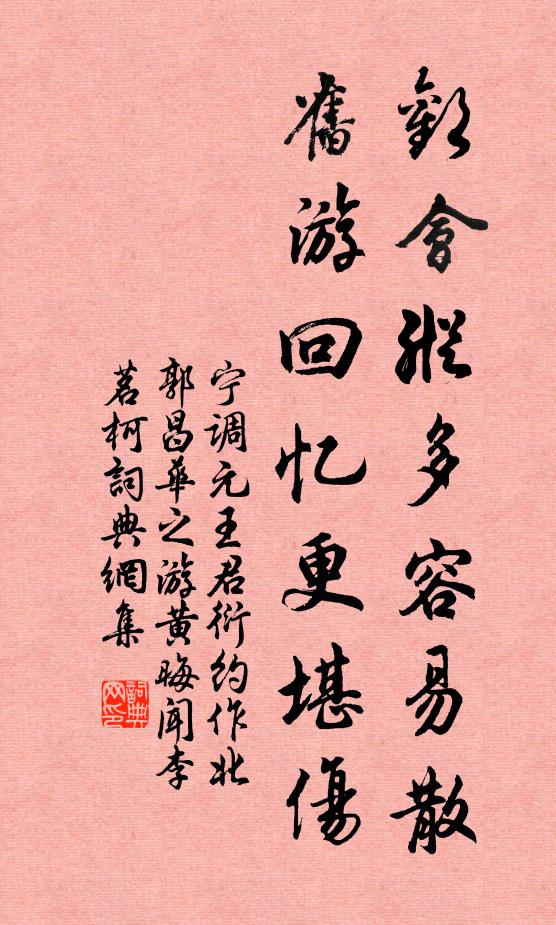 歡會縱多容易散
舊游回忆更堪傷
宁调元王君衍约作北
郭昌華之游黄晦闻李
茗柯詞典網集
詞典网印